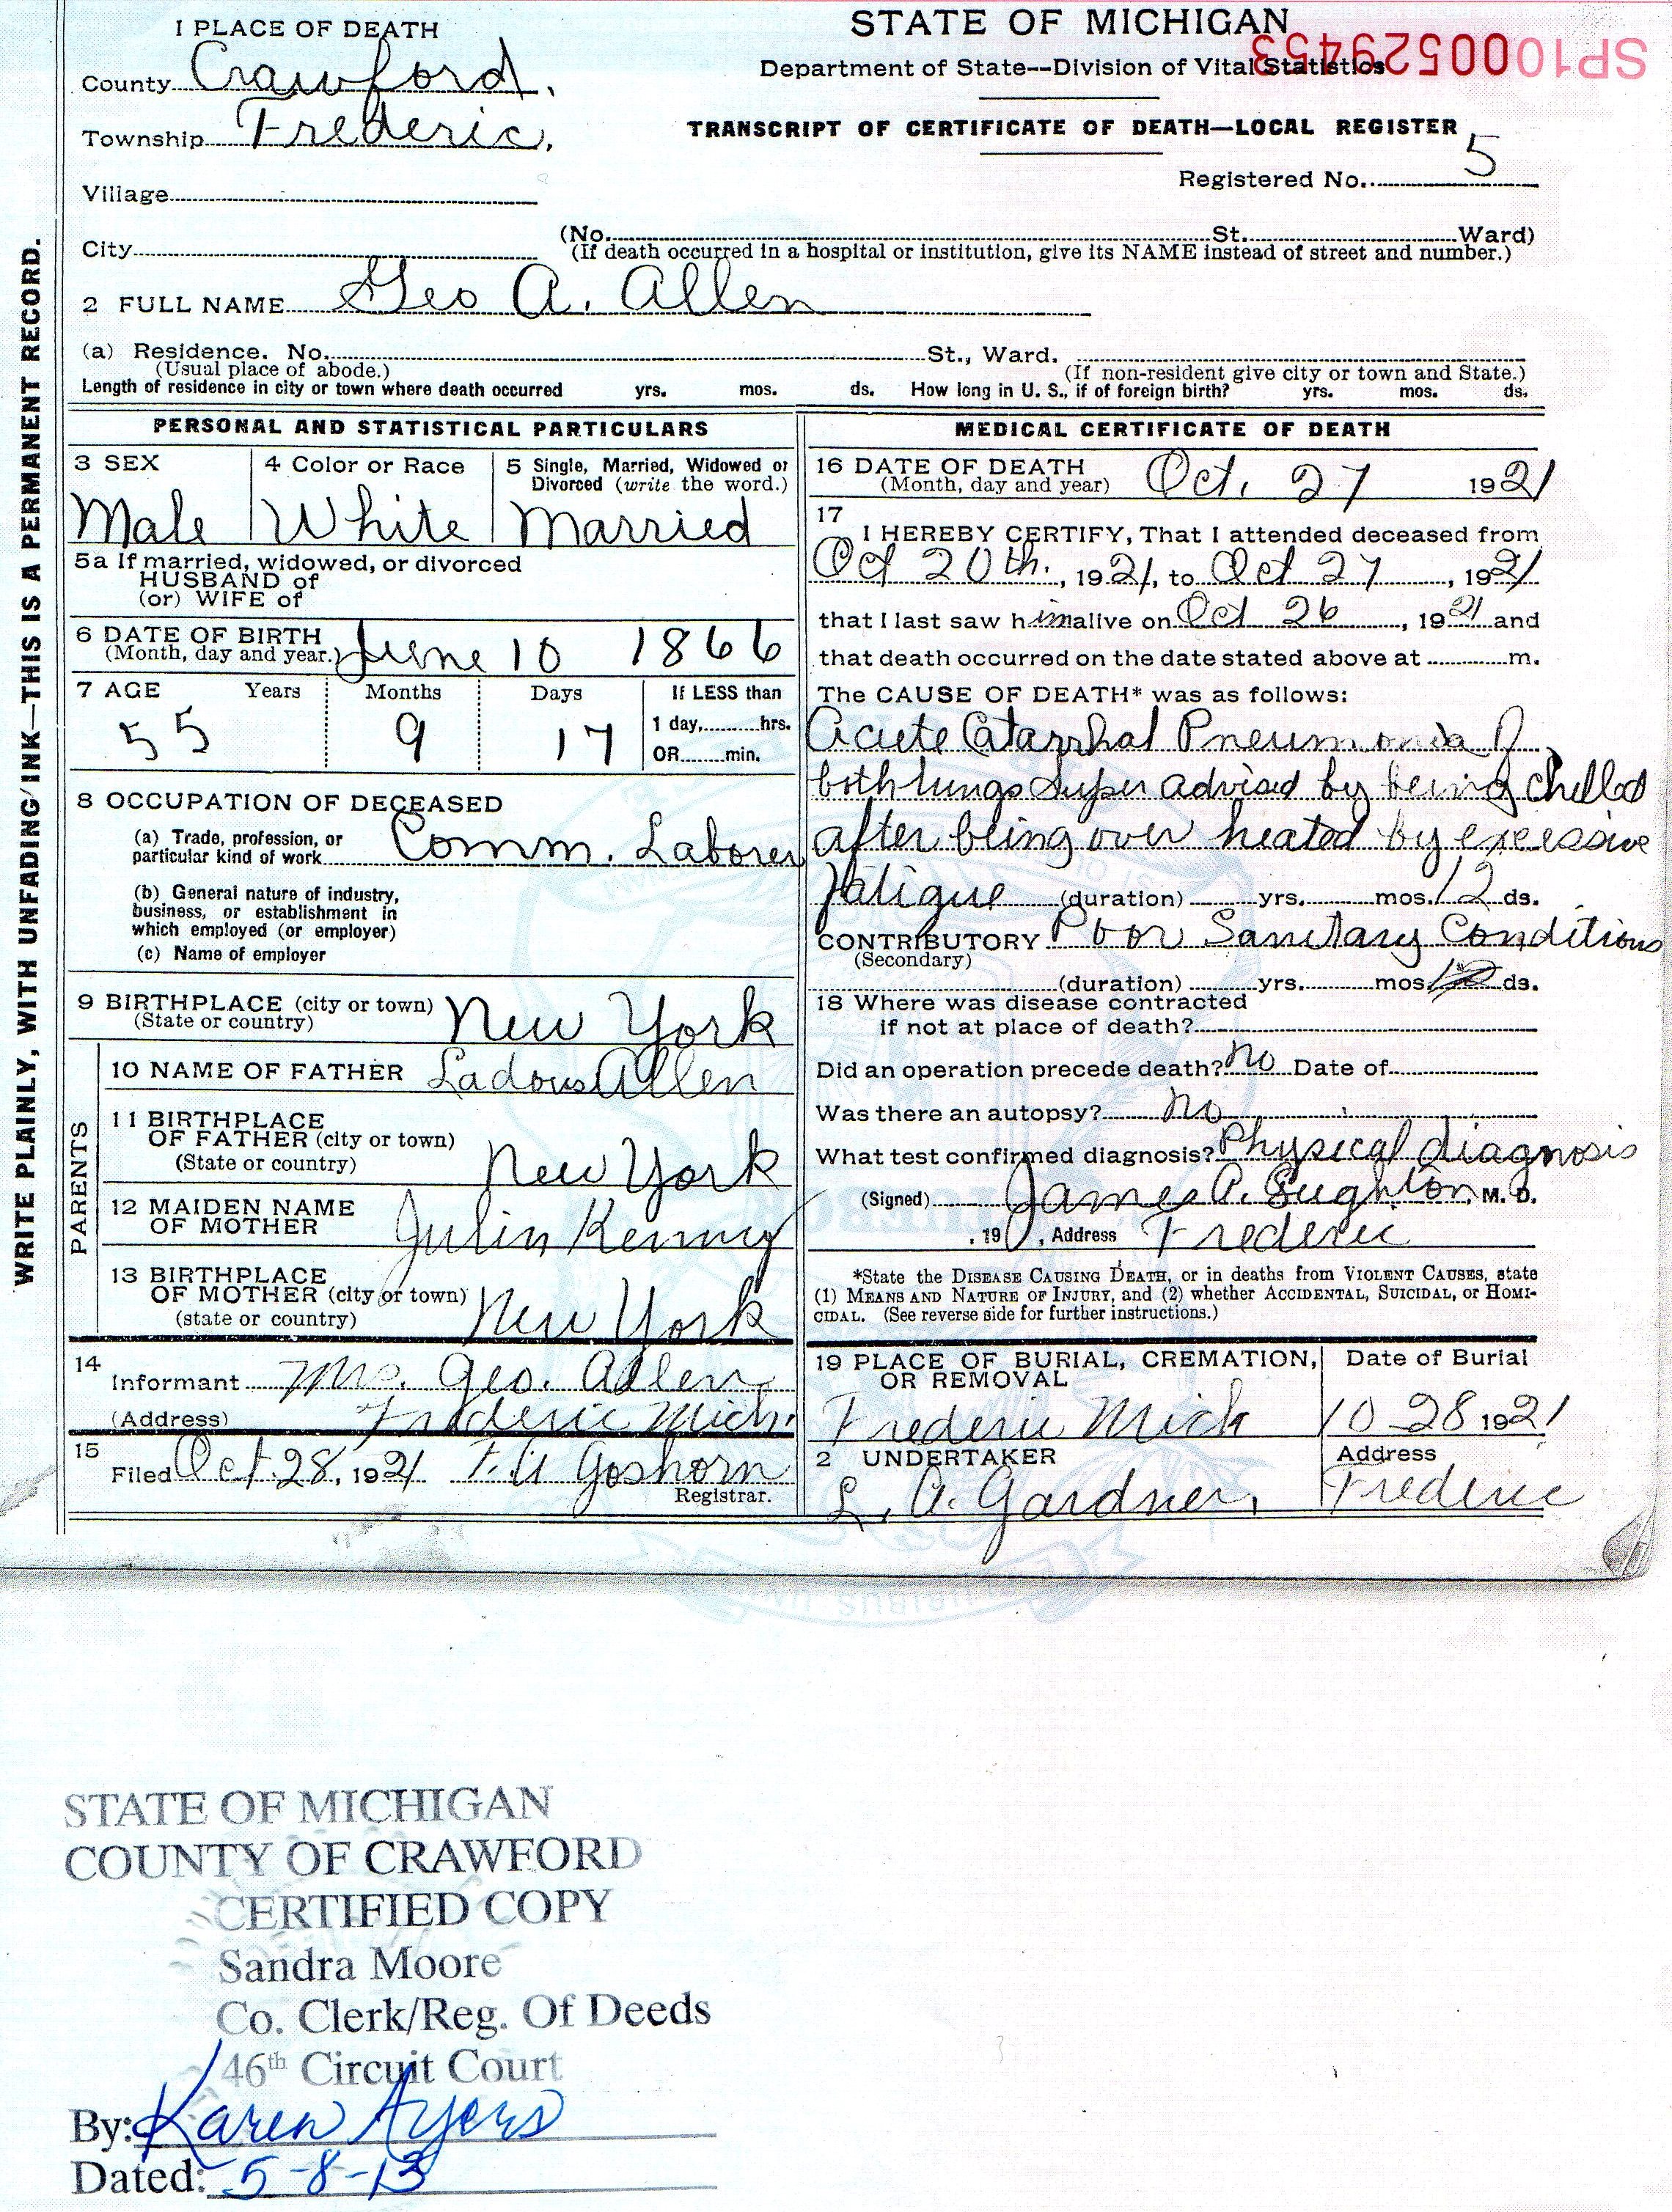 STATE OF MICHIGAN
SP1000529453
Department of State--Division of Vital Statistics
TRANSCRIPT OF CERTIFICATE OF DEATH—LOCAL REGISTER
Registered No. 5
1 PLACE OF DEATH
County Crawford,
Township Frederic,
Village
City
(No. St. Ward)
(If death occurred in a hospital or institution, give its NAME instead of street and number.)
2 FULL NAME Geo A. Allen
(a) Residence. No. St., Ward.
(Usual place of abode.) (If non-resident give city or town and State.)
Length of residence in city or town where death occurred yrs. mos. ds. How long in U. S., if of foreign birth? yrs. mos. ds.
WRITE PLAINLY, WITH UNFADING INK—THIS IS A PERMANENT RECORD.
PERSONAL AND STATISTICAL PARTICULARS
3 SEX
Male
4 Color or Race
White
5 Single, Married, Widowed or
Divorced (write the word.)
Married
5a If married, widowed, or divorced
HUSBAND of
(or) WIFE of
6 DATE OF BIRTH
(Month, day and year.) June 10 1866
7 AGE Years Months Days If LESS than
1 day, hrs.
55 9 17
OR min.
8 OCCUPATION OF DECEASED
(a) Trade, profession, or
particular kind of work Comm. Laborer
(b) General nature of industry,
business, or establishment in
which employed (or employer)
(c) Name of employer
9 BIRTHPLACE (city or town)
(State or country) New York
PARENTS
10 NAME OF FATHER Allen
11 BIRTHPLACE
OF FATHER (city or town)
(State or country) New York
12 MAIDEN NAME
OF MOTHER
13 BIRTHPLACE
OF MOTHER (city or town)
(state or country) New York
14
Informant Mrs. Geo. Allen
(Address) Frederic Mich.
15
Filed Oct. 28, 1921 Goshorn
Registrar.
MEDICAL CERTIFICATE OF DEATH
16 DATE OF DEATH
(Month, day and year) Oct. 27 1921
17
I HEREBY CERTIFY, That I attended deceased from
Oct 20th, 1921, to Oct 27, 1921
that I last saw him alive on Oct 26, 1921 and
that death occurred on the date stated above at m.
The CAUSE OF DEATH* was as follows:
Acute Catarrhal Pneumonia of
both lungs Super advised by being chilled
after being over heated by excessive
fatigue (duration) yrs. mos. 12 ds.
CONTRIBUTORY Poor Sanitary Conditions
(Secondary)
(duration) yrs. mos. ds.
18 Where was disease contracted
if not at place of death?
Did an operation precede death? no Date of
Was there an autopsy? no
What test confirmed diagnosis? Physical diagnosis
(Signed) James A. M. D.
, 19 , Address Frederic
*State the DISEASE CAUSING DEATH, or in deaths from VIOLENT CAUSES, state
(1) MEANS AND NATURE OF INJURY, and (2) whether ACCIDENTAL, SUICIDAL, or HOMI-
CIDAL. (See reverse side for further instructions.)
19 PLACE OF BURIAL, CREMATION,
OR REMOVAL
Frederic Mich
Date of Burial
10-28 1921
2 UNDERTAKER
L. A. Gardner,
Address
Frederic
STATE OF MICHIGAN
COUNTY OF CRAWFORD
CERTIFIED COPY
Sandra Moore
Co. Clerk/Reg. Of Deeds
46th Circuit Court
By: Karen Ayers
Dated: 5-8-13